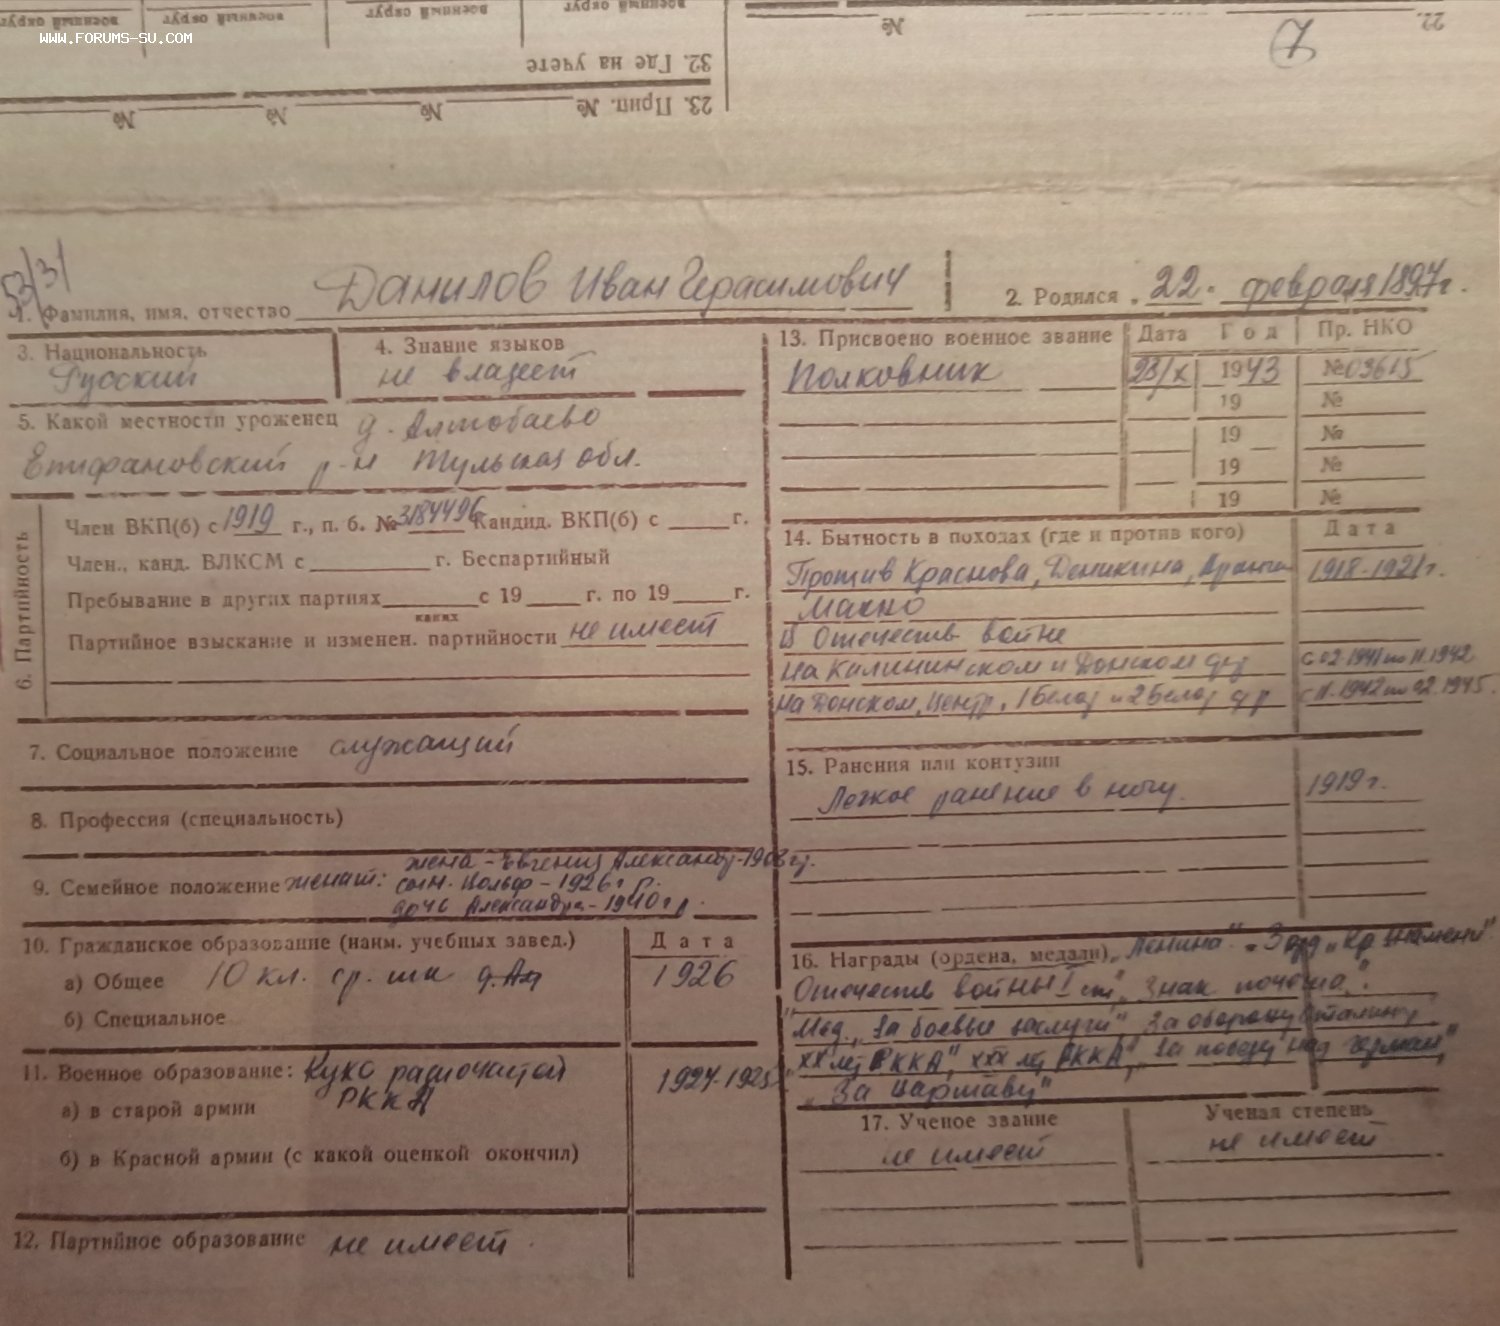 военный округ военный округ военный округ военный округ
WWW.FORUMS-SU.COM
№
22.
7
32. Где на учете
23. Прип. № № № №
53/31
1. Фамилия, имя, отчество Данилов Иван Герасимович
2. Родился „22“ февраля 1897г.
3. Национальность
Русский
4. Знание языков
не владеет
5. Какой местности уроженец д. Алтобаево
Епифановский р-н Тульская обл.
6. Партийность
Член ВКП(б) с 1919 г., п. б. № 3184496 Кандид. ВКП(б) с г.
Член., канд. ВЛКСМ с г. Беспартийный
Пребывание в других партиях с 19 г. по 19 г.
каких
Партийное взыскание и изменен. партийности не имеет
7. Социальное положение служащий
8. Профессия (специальность)
жена - Евгения Александр - 1908 г.
9. Семейное положение женат: сын. Вольф - 1926 г.р.
дочь Александра - 1940 г.р.
10. Гражданское образование (наим. учебных завед.) Дата
а) Общее 10 кл. ср. шк 1926
б) Специальное
11. Военное образование: 1924-1925
РККА
а) в старой армии
б) в Красной армии (с какой оценкой окончил)
12. Партийное образование не имеет
13. Присвоено военное звание Дата Год Пр. НКО
Полковник 23/X 1943 №03615
19 №
19 №
19 №
19 №
14. Бытность в походах (где и против кого) Дата
Против Краснова, Деникина, 1918-1921г.
Махно
В Отечеств войне
на Калининском и Донском фр с 02.1941 по 11.1942
на Донском, Центр, 1 Белор и 2 Белор фр с 11.1942 по 02.1945.
15. Ранения или контузии
Легкое ранение в ногу. 1919г.
16. Награды (ордена, медали) „Ленина“ „3 орд „Кр Знамени“
Отечеств войны I ст“, Знак почета“.
Мед „За боевые заслуги“, За оборону Сталинг
„XX лет РККА“, XXX лет РККА“, „За победу над Герман“
„За Варшаву“
17. Ученое звание Ученая степень
не имеет не имеет